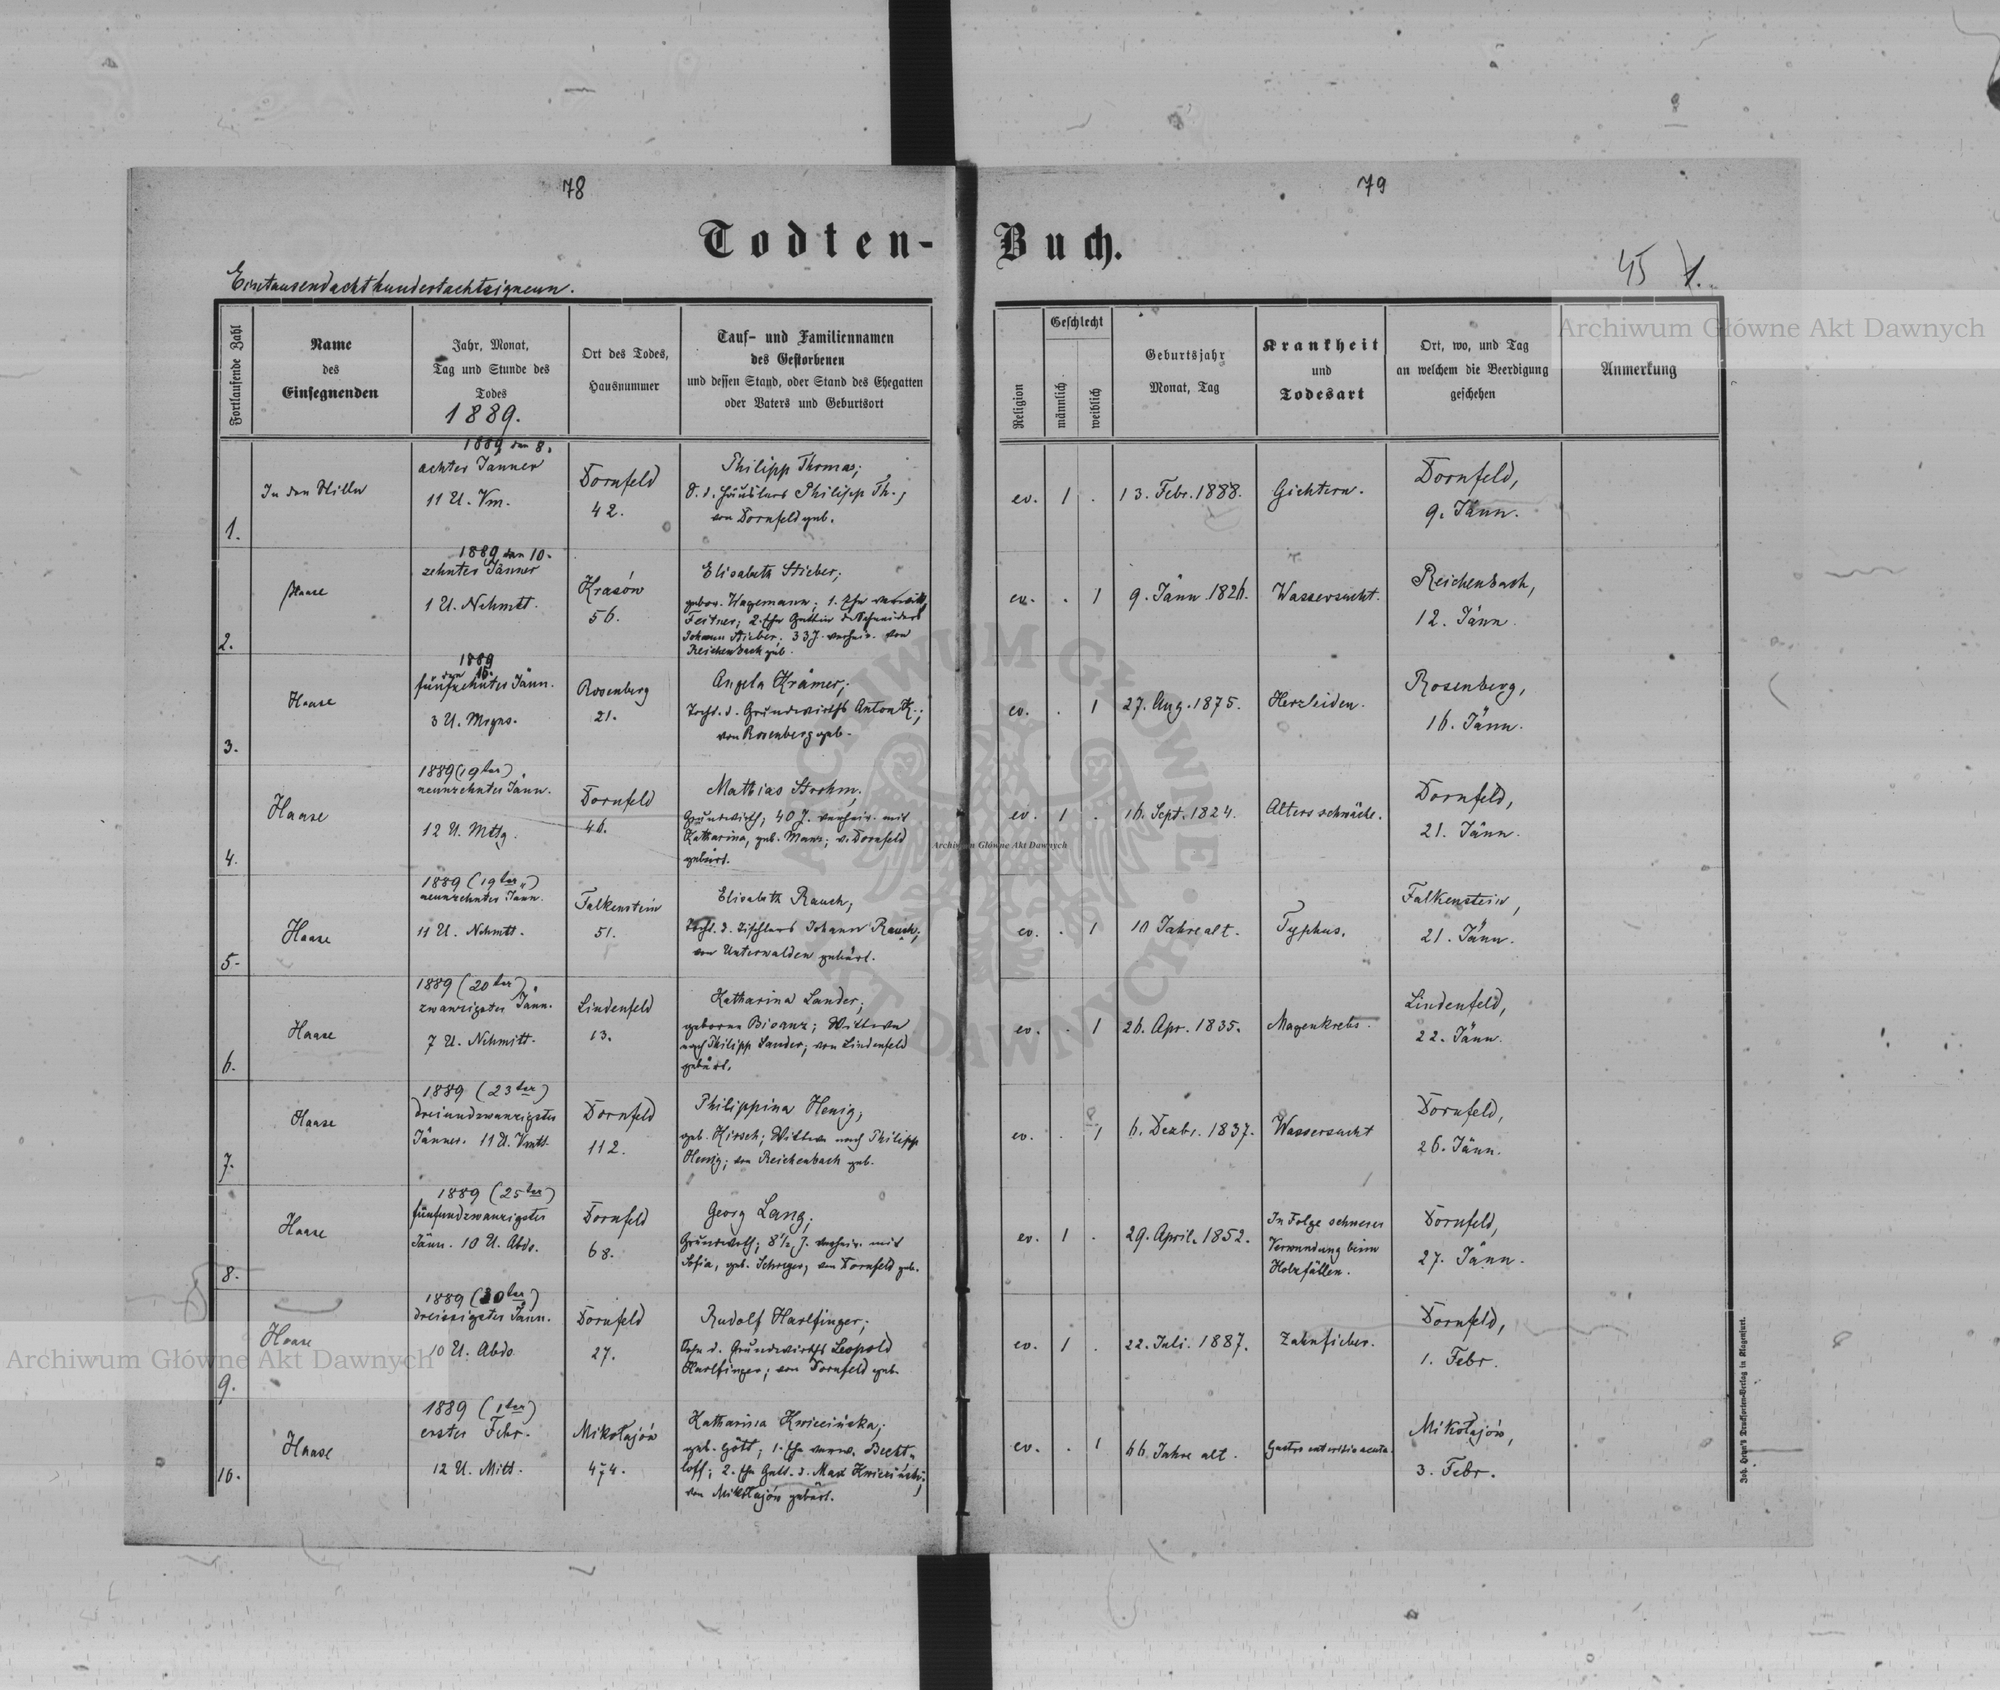 78
79
Todten-
Buch.
45 1.
Eintausendachthundertachtzigneun.
Fortlaufende Zahl
Name
des
Einsegnenden
Jahr, Monat,
Tag und Stunde des
Todes
1889.
Ort des Todes,
Hausnummer
Tauf- und Familiennamen
des Gestorbenen
und dessen Stand, oder Stand des Ehegatten
oder Vaters und Geburtsort
Religion
Geschlecht
männlich
weiblich
Geburtsjahr
Monat, Tag
Krankheit
und
Todesart
Ort, wo, und Tag
an welchem die Beerdigung
geschehen
Anmerkung
1.
1889 den 8.
achter Jänner
11 U. Vm.
Dornfeld
42.
Philipp Thomas;
S. d. Häuslers Philipp Th.,
von Dornfeld geb.
ev. 1 .
13. Febr. 1888.
Gichtern.
Dornfeld,
9. Jänn.
2.
Haase
1889 den 10.
zehnter Jänner
1 U. Nchmtt.
Krasów
56.
Elisabeth Stieber;
gebor. Wagemann; 1. Ehe verwitt.
2. Ehe Gattin d. Schneiders
Johann Stieber; 33 J. verheir. von
Reichenbach geb.
ev. . 1
9. Jänn. 1826.
Wassersucht.
Reichenbach,
12. Jänn.
3.
Haase
1889
den 15.
fünfzehnter Jänn.
3 U. Mrgns.
Rosenberg
21.
Angela Krämer;
Tocht. d. Grundwirths Anton K.;
von Rosenberg geb.
ev. . 1
27. Aug. 1875.
Herzleiden.
Rosenberg,
16. Jänn.
4.
Haase
1889 (19ter)
neunzehnter Jänn.
12 U. Mttg.
Dornfeld
46.
Mathias Strohm;
Grundwirth; 40 J. verheir. mit
Katharina, geb. Manz; v. Dornfeld
gebürt.
ev. 1 .
16. Sept. 1824.
Altersschwäche.
Dornfeld,
21. Jänn.
5.
Haase
1889 (19ter)
neunzehnter Jänn.
11 U. Nchmtt.
Falkenstein
51.
Elisabeth Rauch;
Tocht. d. Tischlers Johann Rauch;
von Unterwalden gebürt.
ev. . 1
10 Jahre alt.
Typhus.
Falkenstein,
21. Jänn.
6.
Haase
1889 (20ter)
zwanzigster Jänn.
7 U. Nchmitt.
Lindenfeld
13.
Katharina Lander;
geborne Bisanz; Wittwe
nach Philipp Lander; von Lindenfeld
gebürt.
ev. . 1
26. Apr. 1835.
Magenkrebs.
Lindenfeld,
22. Jänn.
7.
Haase
1889 (23ter)
dreiundzwanzigster
Jänner. 11 U. Vmtt.
Dornfeld
112.
Philippina Henig;
geb. Hirsch; Wittwe nach Philipp
Henig; von Reichenbach geb.
ev. . 1
6. Dezbr. 1837.
Wassersucht
Dornfeld,
26. Jänn.
8.
Haase
1889 (25ter)
fünfundzwanzigster
Jänn. 10 U. Abds.
Dornfeld
68.
Georg Lang;
Grundwirth; 8 1/2 J. verheir. mit
Sofia, geb. Schreyer, von Dornfeld geb.
ev. 1 .
29. April. 1852.
In Folge schwerer
Verwundung beim
Holzfällen.
Dornfeld,
27. Jänn.
9.
Haase
1889 (30ter)
dreissigster Jänn.
10 U. Abds.
Dornfeld
27.
Rudolf Harlfinger;
Sohn d. Grundwirths Leopold
Harlfinger; von Dornfeld geb.
ev. 1 .
22. Juli. 1887.
Zahnfieber.
Dornfeld,
1. Febr.
10.
Haase
1889 (1ter)
erster Febr.
12 U. Mitt.
Mikołajów
474.
Katharina Kwiecińska;
geb. Gött; 1. Ehe verw. Becht-
loff; 2. Ehe Gatt. d. Max Kwieciński;
von Mikołajów gebürt.
ev. . 1
66 Jahre alt.
Gastro enteritis acuta.
Mikołajów,
3. Febr.
Joh. Heyn's Drucksorten-Verlag in Klagenfurt.
Archiwum Główne Akt Dawnych
Archiwum Główne Akt Dawnych
Archiwum Główne Akt Dawnych
ARCHIWUM GŁÓWNE AKT DAWNYCH